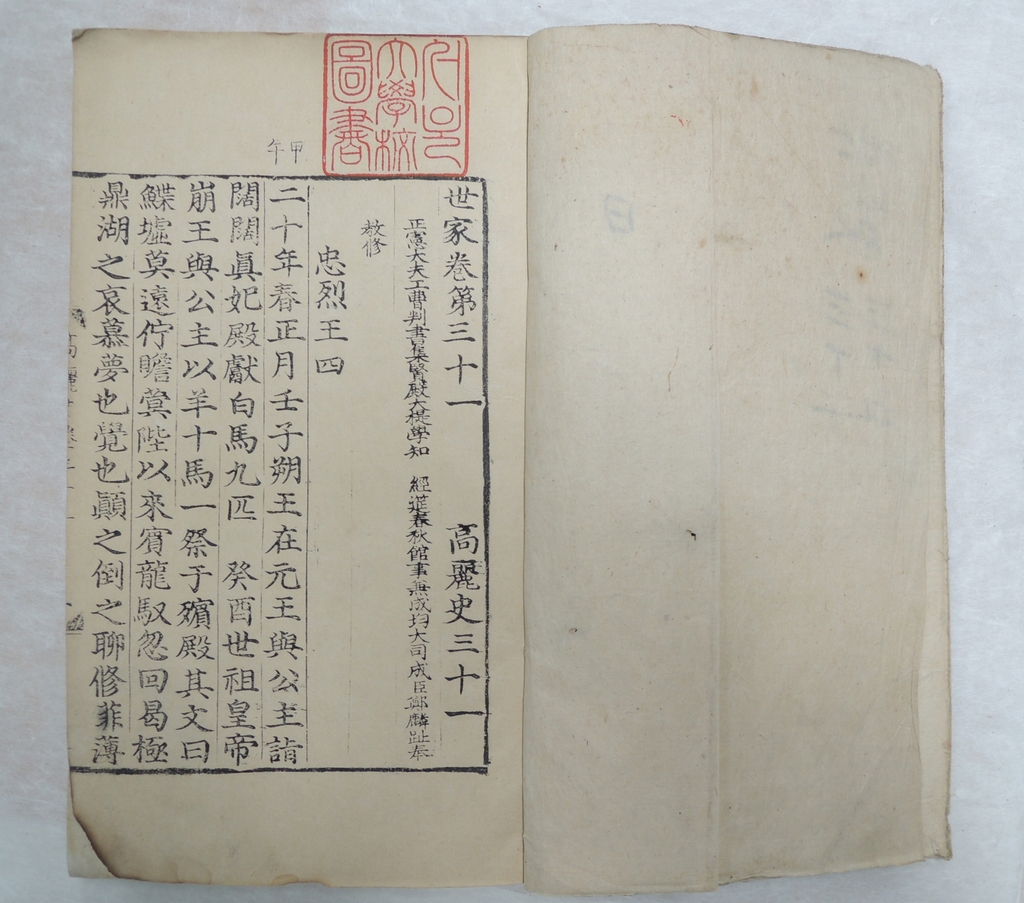 서울
大學校
圖書
甲午
世家卷第三十一 高麗史三十一
正憲大夫工曹判書集賢殿大提學知 經筵春秋館事兼成均大司成臣鄭麟趾奉
敎修
忠烈王四
二十年春正月壬子朔王在元王與公主詣
闊闊眞妃殿獻白馬九匹 癸酉世祖皇帝
崩王與公主以羊十馬一祭于殯殿其文曰
鰈墟莫遠佇瞻蓂陛以來賓龍馭忽回曷極
鼎湖之哀慕夢也覺也顚之倒之聊修菲薄